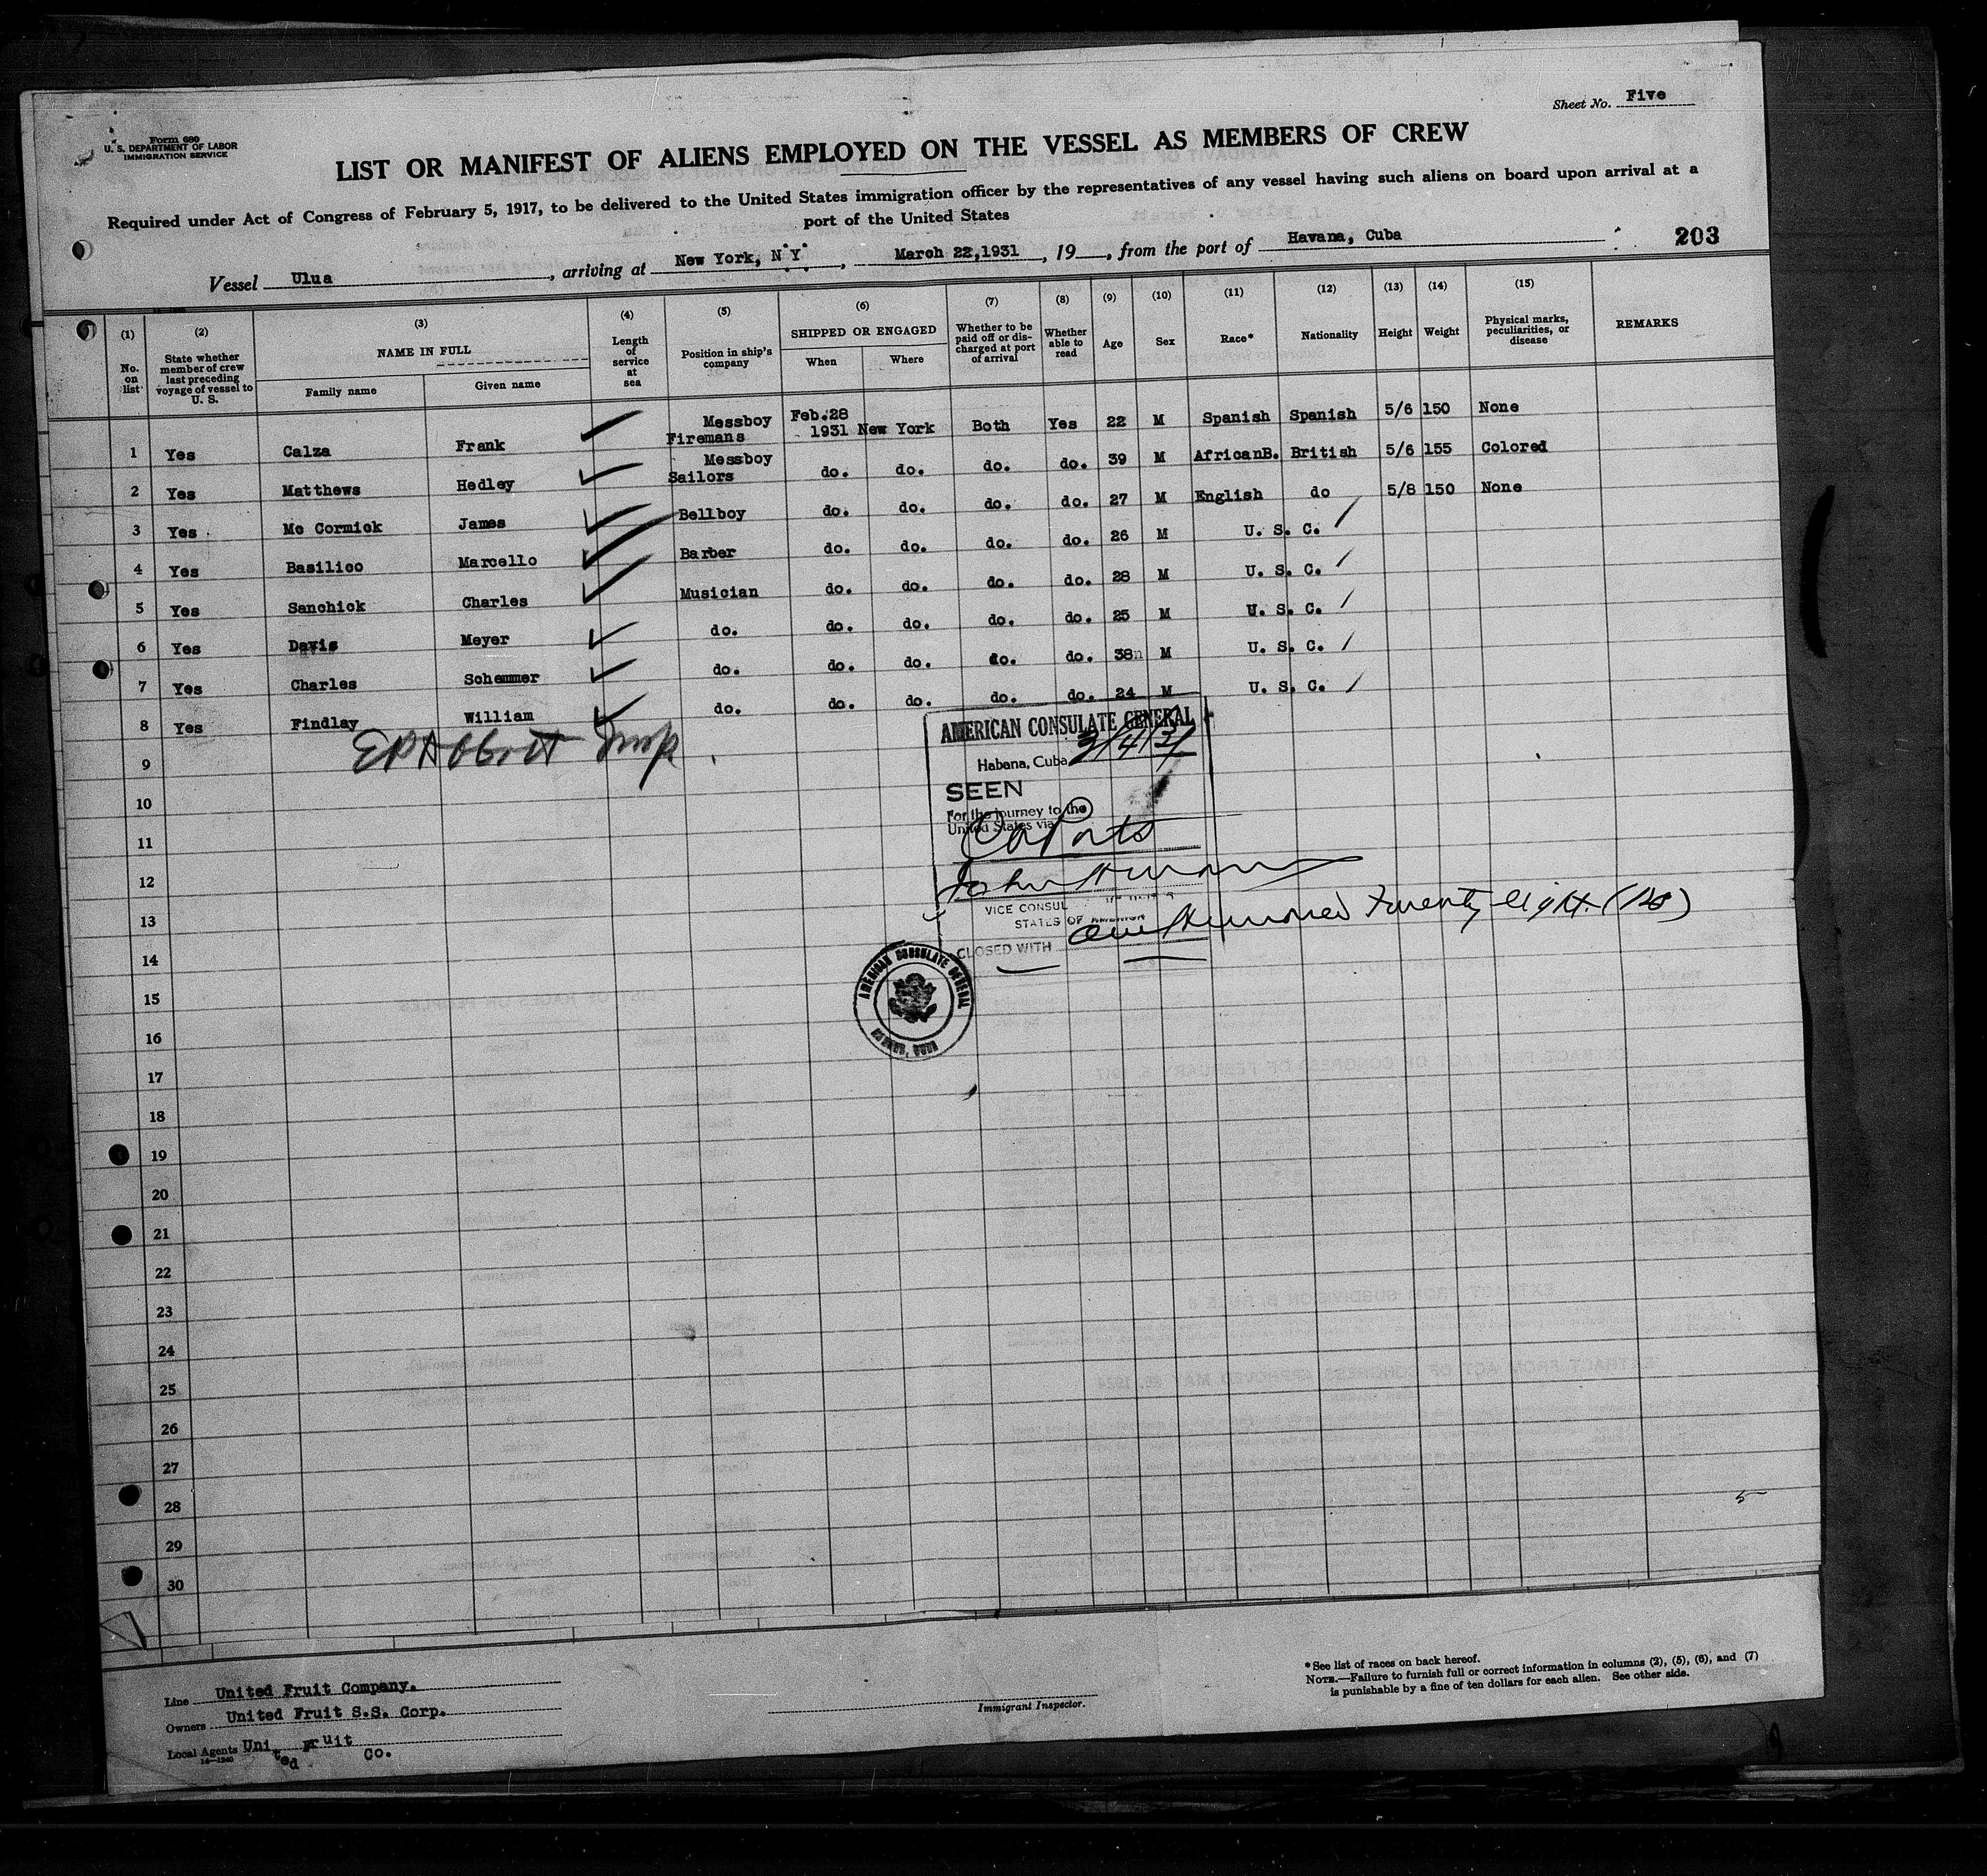 Sheet No. Five
Form 680
U. S. DEPARTMENT OF LABOR
IMMIGRATION SERVICE
LIST OR MANIFEST OF ALIENS EMPLOYED ON THE VESSEL AS MEMBERS OF CREW
Required under Act of Congress of February 5, 1917, to be delivered to the United States immigration officer by the representatives of any vessel having such aliens on board upon arrival at a
port of the United States
Vessel Ulua, arriving at New York, N Y, March 22,1931, 19, from the port of Havana, Cuba
203
(1) No. on list
(2) State whether member of crew last preceding voyage of vessel to U. S.
(3) NAME IN FULL Family name Given name
(4) Length of service at sea
(5) Position in ship's company
(6) SHIPPED OR ENGAGED When Where
(7) Whether to be paid off or discharged at port of arrival
(8) Whether able to read
(9) Age
(10) Sex
(11) Race*
(12) Nationality
(13) Height
(14) Weight
(15) Physical marks, peculiarities, or disease
REMARKS
1 Yes Calza Frank Messboy Firemans Feb.28 1931 New York Both Yes 22 M Spanish Spanish 5/6 150 None
2 Yes Matthews Hedley Messboy Sailors do. do. do. do. 39 M AfricanB. British 5/6 155 Colored
3 Yes Mc Cormick James Bellboy do. do. do. do. 27 M English do 5/8 150 None
4 Yes Basilico Marcello Barber do. do. do. do. 26 M U. S. C.
5 Yes Sanchick Charles Musician do. do. do. do. 28 M U. S. C.
6 Yes Davis Meyer do. do. do. do. do. 25 M U. S. C.
7 Yes Charles Schemmer do. do. do. do. do. 38 M U. S. C.
8 Yes Findlay William do. do. do. do. do. 24 M U. S. C.
9
10
11
12
13
14
15
16
17
18
19
20
21
22
23
24
25
26
27
28
29
30
AMERICAN CONSULATE GENERAL
Habana, Cuba
SEEN
For the journey to the
United States via
VICE CONSUL
STATES OF AMERICA
CLOSED WITH One Hundred twenty eight (128)
AMERICAN CONSULATE GENERAL
5
Line United Fruit Company.
Owners United Fruit S.S. Corp.
Local Agents United Fruit Co.
Immigrant Inspector.
*See list of races on back hereof.
NOTE.—Failure to furnish full or correct information in columns (2), (5), (6), and (7)
is punishable by a fine of ten dollars for each alien. See other side.